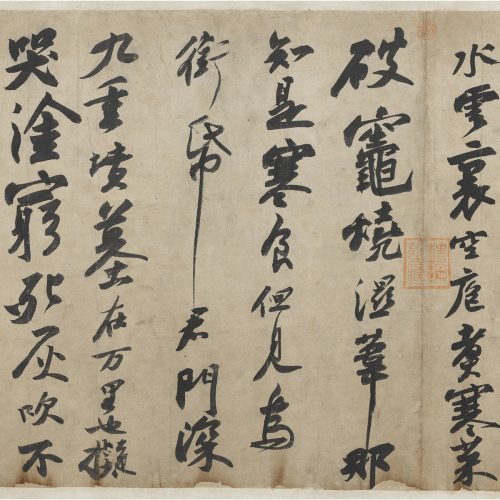 水雲裏空庖煮寒菜
破竈燒濕葦那
知是寒食但見烏
銜帋君門深
九重墳墓在万里也擬
哭塗窮死灰吹不